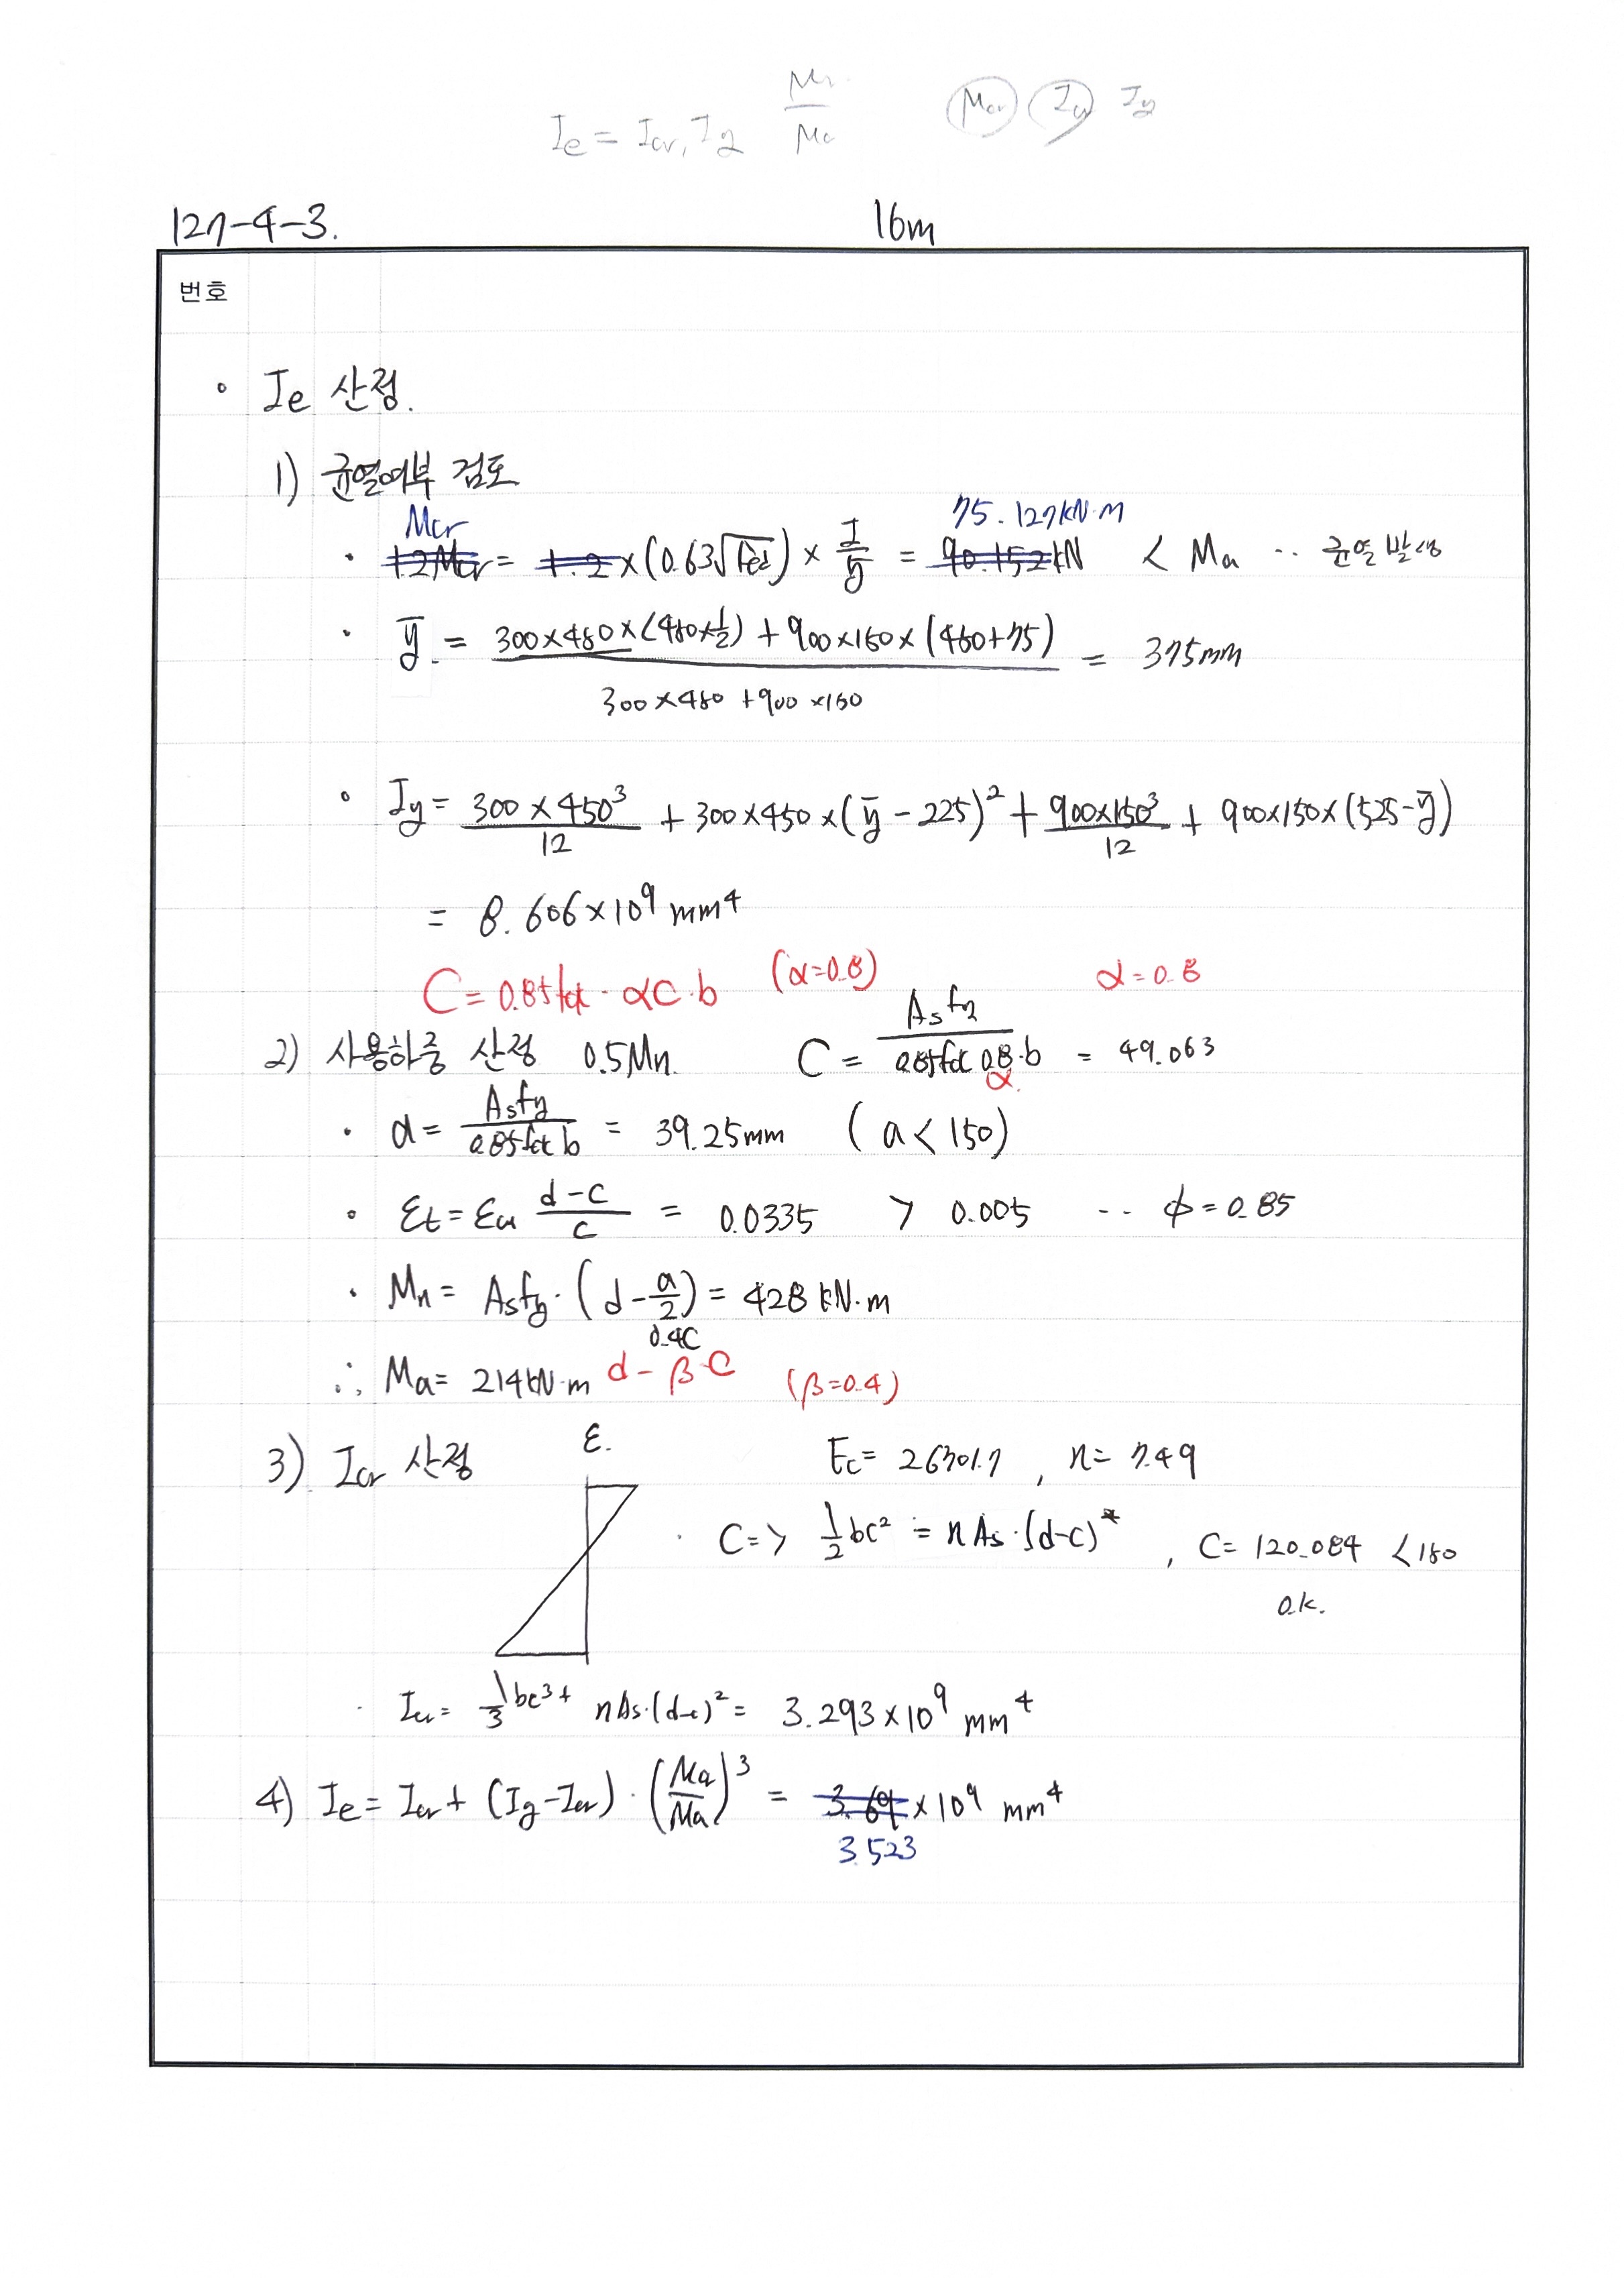 Ie = Icr, Ig Mcr/Ma Mcr Icr Ig
127-4-3. 16m
번호
◦ Ie 산정.
1) 균열여부 검토
Mcr 75.127kN·m
· 1.2Mcr = 1.2×(0.63√fck) × I/ȳ = 90.152kN < Ma ·· 균열 발생
· ȳ = (300×450×(450×1/2) + 900×150×(450+75)) / (300×450+900×150) = 375mm
◦ Ig = 300×450³/12 + 300×450×(ȳ-225)² + 900×150³/12 + 900×150×(525-ȳ)
= 8.606×10⁹ mm⁴
C = 0.85fck·αC·b (α=0.8) α=0.8
2) 사용하중 산정 0.5Mn. C = Asfy / (0.85fck 0.8·b) = 49.063
α
· a = Asfy / (0.85fck b) = 39.25mm (a<150)
◦ εt = εcu (d-c)/c = 0.0335 > 0.005 ·· φ=0.85
· Mn = Asfy·(d-a/2) = 428 kN·m
0.4C
∴ Ma = 214kN·m d-β·C (β=0.4)
3) Icr 산정 ε. Ec = 26701.7 , n = 7.49
· C => 1/2bc² = nAs·(d-c) , C = 120.084 <150
o.k.
· Icr = 1/3bc³+ nAs·(d-c)² = 3.293×10⁹ mm⁴
4) Ie = Icr + (Ig-Icr)·(Ma/Ma)³ = 3.69×10⁹ mm⁴
3.523